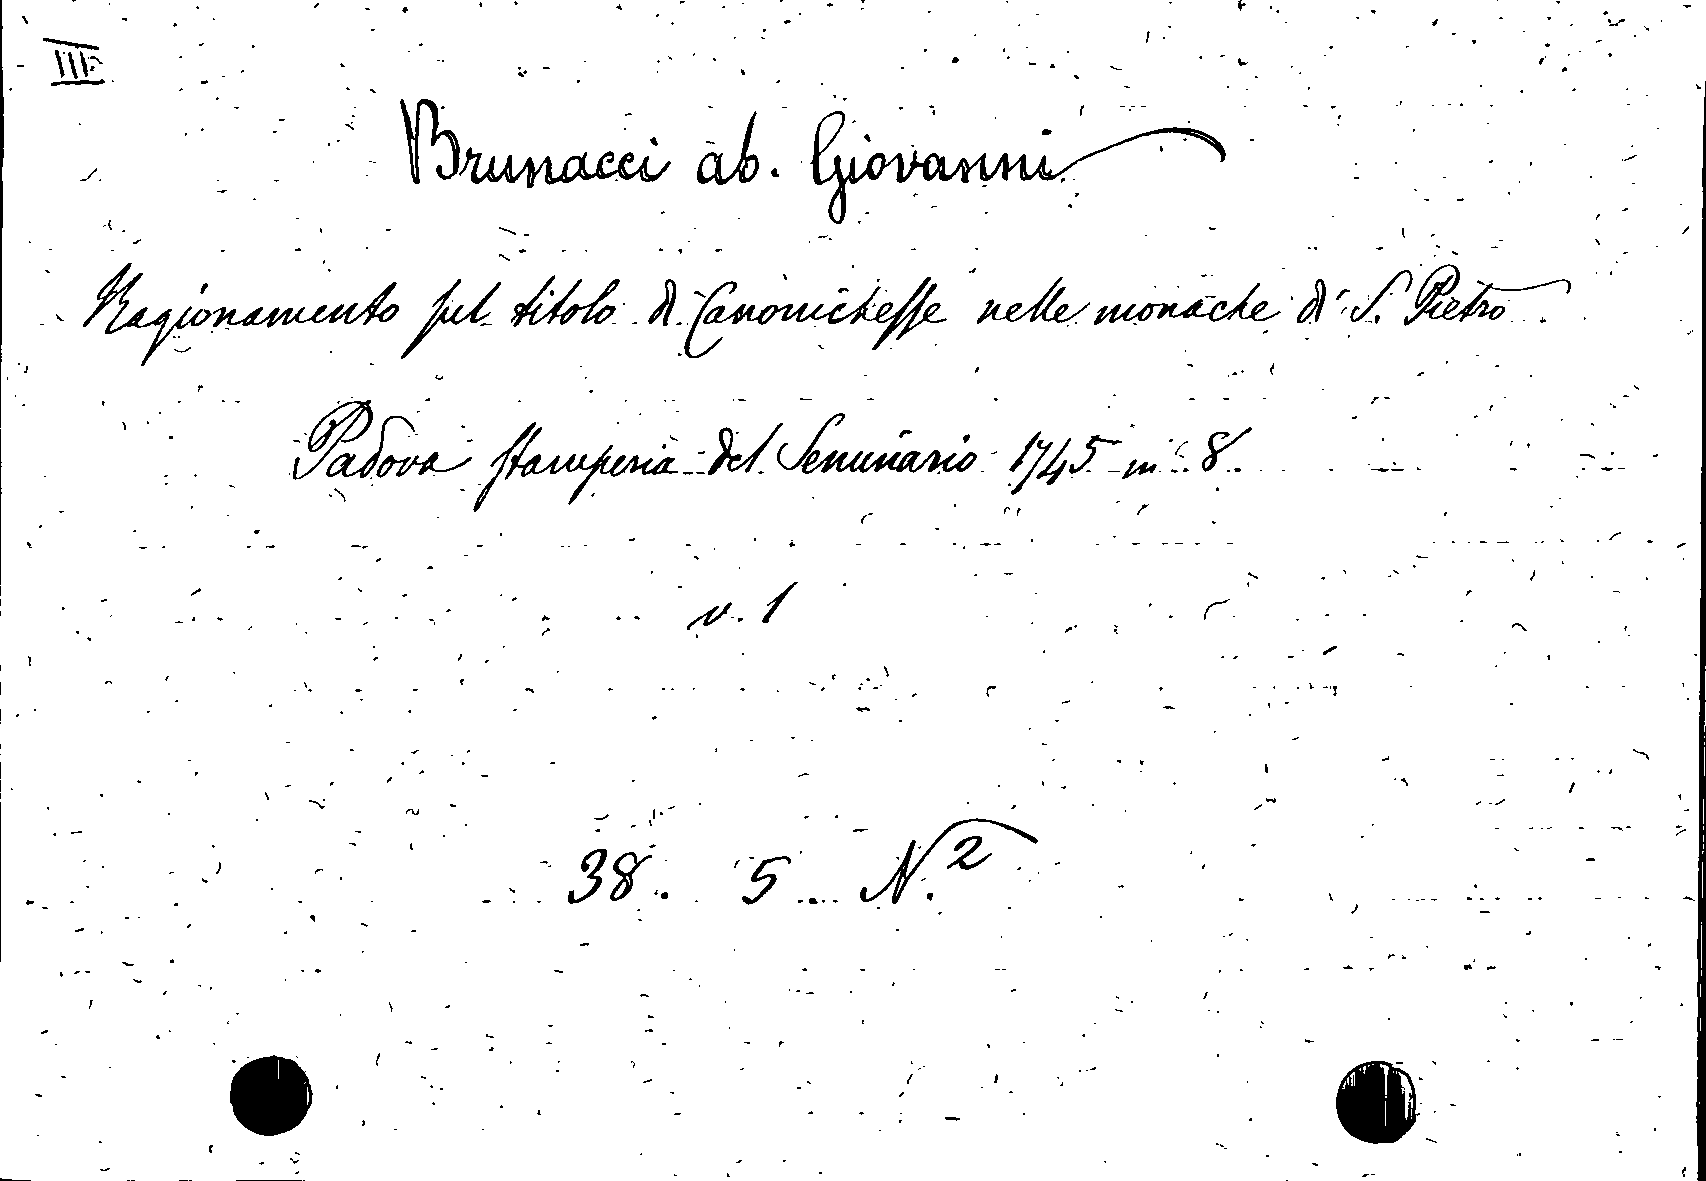 III
Brunacci ab. Giovanni
Ragionamento sul titolo di Canonichesse nelle monache di S. Pietro
Padova stamperia del Seminario 1745 in 8.
v. 1
38. 5 N. 2